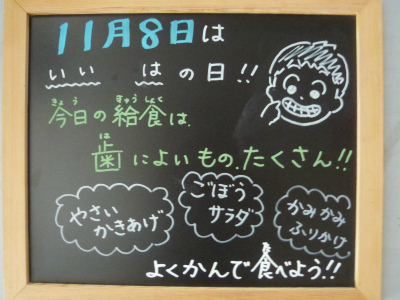 11月8日は
いい はの日!!
きょう きゅうしょく
今日の給食は、
は
歯によいもの、たくさん!!
やさい
かきあげ
ごぼう
サラダ
かみかみ
ふりかけ
た
よくかんで食べよう!!